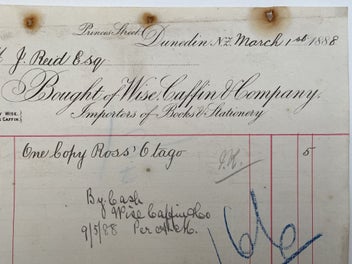 Princes Street, Dunedin N.Z. March 1st 1888
J. Reid Esq
Bought of Wise, Caffin & Company.
WISE.
CAFFIN.
Importers of Books & Stationery
One Copy Ross' Otago 5
By Cash
Wise Caffin & Co
9/5/88 Per